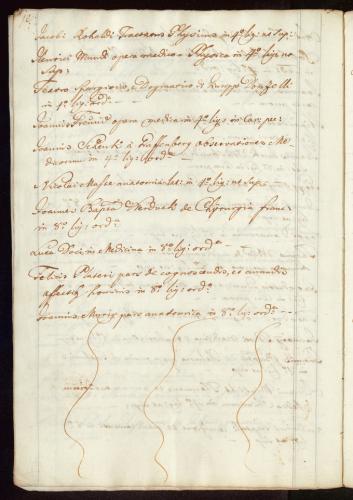 Jacobi Rohaldi Tractatus Physicus in 4º lig: ut sup:
Henrici Mundi opera medica Physica in 4º lig: ut
sup:
Teatro Farmaceutico, Dogmatico di Giuseppe Donzelli
in 4º lig: ordª
Joannis Freind opera medica in 4º lig: in Car: pe:
Joannis Schenki à Graffenberg observationes Me-
dicarum in 4º lig: ordª
Nicolai Massae anatomia let: in 4º lig: ut sup:
Joannis Bapta Verduch de Chirurgia
in 8º lig: ordª
Medicina in 8º lig: ordª
Felicis Plateri pars de cognoscendis, et curandis
affectib: hominis in 8º lig: ordª
Joannis pars anatomica in 8º lig: ordª